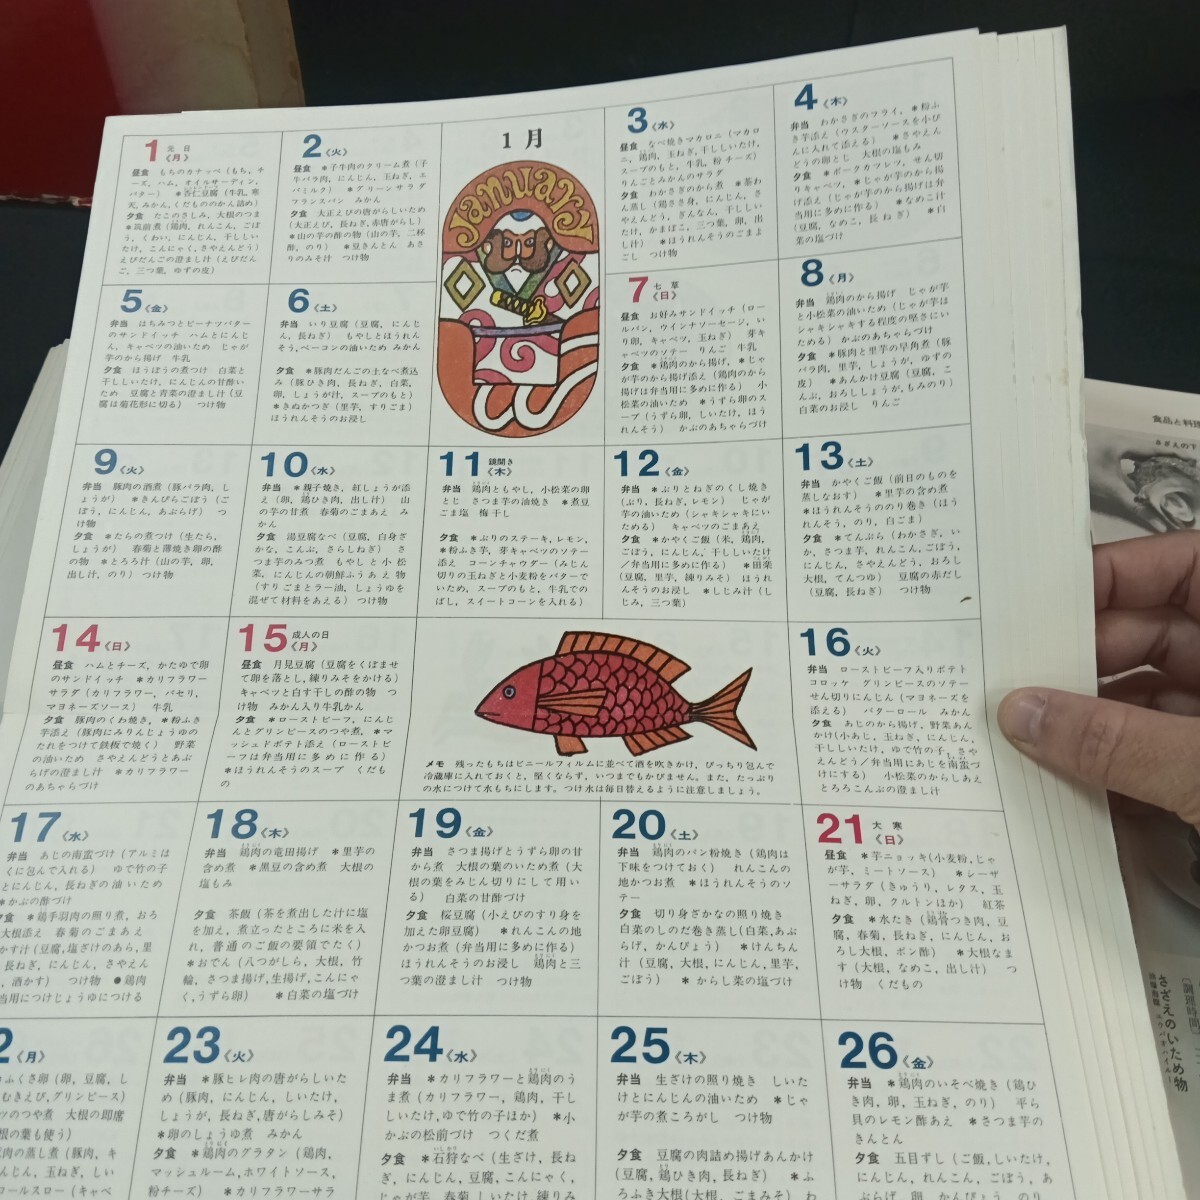 1 元日《月》
昼食 もちのカナッペ（もち，チーズ，ハム，オイルサーディン，バター） ＊杏仁豆腐（牛乳，寒天，みかん，くだもののかん詰め）
夕食 たこのさしみ，大根のつま
＊筑前煮（鶏肉，れんこん，ごぼう，くわい，にんじん，干ししいたけ，こんにゃく，さやえんどう）
えびだんごの澄まし汁（えびだんご，三つ葉，ゆずの皮）
2《火》
昼食 ＊子牛肉のクリーム煮（子牛バラ肉，にんじん，玉ねぎ，エバミルク） ＊グリーンサラダ
フランスパン みかん
夕食 大正えびの唐がらしいため（大正えび，長ねぎ，赤唐がらし）
＊山の芋の酢の物（山の芋，二杯酢，のり） ＊豆きんとん あさりのみそ汁 つけ物
1月
January
3《水》
昼食 なべ焼きマカロニ（マカロニ，鶏肉，玉ねぎ，干ししいたけ，スープのもと，牛乳，粉チーズ）
りんごとみかんのサラダ
夕食 わかさぎのから煮 ＊茶わん蒸し（鶏ささ身，にんじん，さやえんどう，ぎんなん，干ししいたけ，かまぼこ，三つ葉，卵，出し汁） ＊ほうれんそうのごまよごし つけ物
4《木》
弁当 わかさぎのフライ，＊粉ふき芋添え（ウスターソースを小びんに入れて添える） ＊さやえんどうの卵とじ 大根の塩もみ
夕食 ＊ポークカツレツ，せん切りキャベツ，＊じゃが芋のから揚げ添え（じゃが芋のから揚げは弁当用に多めに作る） ＊なめこ汁（豆腐，なめこ，長ねぎ） ＊白菜の塩づけ
5《金》
弁当 はちみつとピーナツバターのサンドイッチ ハムとにんじん，キャベツの油いため じゃが芋のから揚げ 牛乳
夕食 ほうぼうの煮つけ 白菜と干ししいたけ，にんじんの甘酢いため 豆腐と青菜の澄まし汁（豆腐は菊花形に切る） つけ物
6《土》
弁当 いり豆腐（豆腐，にんじん，長ねぎ） もやしとほうれんそう，ベーコンの油いため みかん
夕食 ＊豚肉だんごの土なべ煮込み（豚ひき肉，長ねぎ，白菜，卵，しょうが汁，スープのもと）
＊きぬかつぎ（里芋，すりごま）
ほうれんそうのお浸し
7 七草《日》
昼食 お好みサンドイッチ（ロールパン，ウインナソーセージ，いり卵，キャベツ，玉ねぎ） 芽キャベツのソテー りんご 牛乳
夕食 ＊鶏肉のから揚げ，＊じゃが芋のから揚げ添え（鶏肉のから揚げは弁当用に多めに作る） 小松菜の油いため ＊うずら卵のスープ（うずら卵，しいたけ，ほうれんそう） かぶのあちゃらづけ
8《月》
弁当 鶏肉のから揚げ じゃが芋と小松菜の油いため（じゃが芋はシャキシャキする程度の堅さにいためる） かぶのあちゃらづけ
夕食 ＊豚肉と里芋の早角煮（豚バラ肉，里芋，しょうが，ゆずの皮） ＊あんかけ豆腐（豆腐，こんぶ，おろししょうが，もみのり）
白菜のお浸し りんご
9《火》
弁当 豚肉の酒煮（豚バラ肉，しょうが） ＊きんぴらごぼう（ごぼう，にんじん，あぶらげ） つけ物
夕食 ＊たらの煮つけ（生たら，しょうが） 春菊と薄焼き卵の酢の物 ＊とろろ汁（山の芋，卵，出し汁，のり） つけ物
10《水》
弁当 ＊親子焼き，紅しょうが添え（卵，鶏ひき肉，出し汁） 山の芋の甘煮 春菊のごまあえ みかん
夕食 湯豆腐なべ（豆腐，白身ざかな，こんぶ，さらしねぎ） さつま芋のみつ煮 もやしと小松菜，にんじんの朝鮮ふうあえ物（すりごまとラー油，しょうゆを混ぜて材料をあえる） つけ物
11 鏡開き《木》
弁当 鶏肉ともやし，小松菜の卵とじ さつま芋の油焼き ＊煮豆 ごま塩 梅干し
夕食 ＊ぶりのステーキ，レモン，＊粉ふき芋，芽キャベツのソテー添え コーンチャウダー（みじん切りの玉ねぎと小麦粉をバターでいため，スープのもと，牛乳でのばし，スイートコーンを入れる）
12《金》
弁当 ＊ぶりとねぎのくし焼き（ぶり，長ねぎ，レモン） じゃが芋の油いため（シャキシャキにいためる） キャベツのごまあえ
夕食 ＊かやくご飯（米，鶏肉，ごぼう，にんじん，干ししいたけ／弁当用に多めに作る） ＊田楽（豆腐，里芋，練りみそ） ほうれんそうのお浸し ＊しじみ汁（しじみ，三つ葉）
13《土》
弁当 かやくご飯（前日のものを蒸しなおす） ＊里芋の含め煮
＊ほうれんそうののり巻き（ほうれんそう，のり，白ごま）
夕食 ＊てんぷら（わかさぎ，いか，さつま芋，れんこん，ごぼう，にんじん，さやえんどう，おろし大根，てんつゆ） 豆腐の赤だし（豆腐，長ねぎ） つけ物
14《日》
昼食 ハムとチーズ，かたゆで卵のサンドイッチ ＊カリフラワーサラダ（カリフラワー，パセリ，マヨネーズソース） 牛乳
夕食 豚肉のくわ焼き，＊粉ふき芋添え（豚肉にみりんじょうゆのたれをつけて鉄板で焼く） 野菜の油いため さやえんどうとあぶらげの澄まし汁 ＊カリフラワーのあちゃらづけ
15 成人の日《月》
昼食 月見豆腐（豆腐をくぼませて卵を落とし，練りみそをかける）
キャベツと白す干しの酢の物 つけ物 みかん入り牛乳かん
夕食 ＊ローストビーフ，にんじんとグリンピースのつや煮，＊マッシュドポテト添え（ローストビーフは弁当用に多めに作る）
＊ほうれんそうのスープ くだもの
メモ 残ったもちはビニールフィルムに並べて酒を吹きかけ，ぴっちり包んで冷蔵庫に入れておくと，堅くならず，いつまでもかびません。また，たっぷりの水につけて水もちにします。つけ水は毎日替えるように注意しましょう。
16《火》
弁当 ローストビーフ入りポテトコロッケ グリンピースのソテー せん切りにんじん（マヨネーズを添える） バターロール みかん
夕食 あじのから揚げ，野菜あんかけ（小あじ，玉ねぎ，にんじん，干ししいたけ，ゆで竹の子，さやえんどう／弁当用にあじを南蛮づけにする） 小松菜のからしあえ
とろろこんぶの澄まし汁
17《水》
弁当 あじの南蛮づけ（アルミはくに包んで入れる） ゆで竹の子とにんじん，長ねぎの油いため
＊かぶの酢づけ
夕食 ＊鶏手羽肉の照り煮，おろ
大根添え 春菊のごまあえ
かす汁（豆腐，塩ざけのあら，里
長ねぎ，にんじん，さやえん
，酒かす） つけ物 ●鶏肉
当用につけじょうゆにつける
18《木》
弁当 鶏肉の竜田揚げ ＊里芋の含め煮 ＊黒豆の含め煮 大根の塩もみ
夕食 茶飯（茶を煮出した汁に塩を加え，煮立ったところに米を入れ，普通のご飯の要領でたく）
＊おでん（八つがしら，大根，竹輪，さつま揚げ，生揚げ，こんにゃく，うずら卵） ＊白菜の塩づけ
19《金》
弁当 さつま揚げとうずら卵の甘から煮 大根の葉のいため煮（大根の葉をみじん切りにして用いる） 白菜の甘酢づけ
夕食 桜豆腐（小えびのすり身を加えた卵豆腐） ＊れんこんの地かつお煮（弁当用に多めに作る）
ほうれんそうのお浸し 鶏肉と三つ葉の澄まし汁 つけ物
20《土》
弁当 鶏肉のパン粉焼き（鶏肉は下味をつけておく） れんこんの地かつお煮 ＊ほうれんそうのソテー
夕食 切り身ざかなの照り焼き
白菜のしのだ巻き蒸し（白菜，あぶらげ，かんぴょう） ＊けんちん汁（豆腐，大根，にんじん，里芋，ごぼう） ＊からし菜の塩づけ
21 大寒《日》
昼食 ＊芋ニョッキ（小麦粉，じゃが芋，ミートソース） ＊レーザーサラダ（きゅうり，レタス，玉ねぎ，卵，クルトンほか） 紅茶
夕食 ＊水たき（鶏骨つき肉，豆腐，春菊，長ねぎ，にんじん，おろし大根，ポン酢） ＊大根なます（大根，なめこ，出し汁） つけ物 くだもの
2《月》
ふくさ卵（卵，豆腐，し
むきえび，グリンピース）
ツのつや煮 大根の即席
根の葉も使う）
肉の蒸し煮（豚肉，キ
んじん，玉ねぎ，しい
コールスロー（キャベ
23《火》
弁当 ＊豚ヒレ肉の唐がらしいため（豚肉，にんじん，しいたけ，しょうが，長ねぎ，唐がらしみそ）
＊卵のしょうゆ煮 みかん
夕食 ＊鶏肉のグラタン（鶏肉，マッシュルーム，ホワイトソース，粉チーズ） ＊カリフラワーサラ
24《水》
弁当 ＊カリフラワーと鶏肉のうま煮（カリフラワー，鶏肉，干ししいたけ，ゆで竹の子ほか） ＊小かぶの松前づけ つくだ煮
夕食 ＊石狩なべ（生ざけ，長ねぎ，にんじん，豆腐，こんにゃく，じゃが芋，春菊，しいたけ，練りみ
25《木》
弁当 生ざけの照り焼き しいたけとにんじんの油いため ＊じゃが芋の煮ころがし つけ物
夕食 豆腐の肉詰め揚げあんかけ（豆腐，鶏ひき肉，長ねぎ） ＊ふろふき大根（大根，ごまみそ） わ
26《金》
弁当 ＊鶏肉のいそべ焼き（鶏ひき肉，卵，玉ねぎ，のり） 平ら貝のレモン酢あえ ＊さつま芋のきんとん
夕食 五目ずし（ご飯，しいたけ，にんじん，れんこん，ごぼう，あぶらげ，卵，かんぴょう，のり）
食品と料理
さざえのいため物